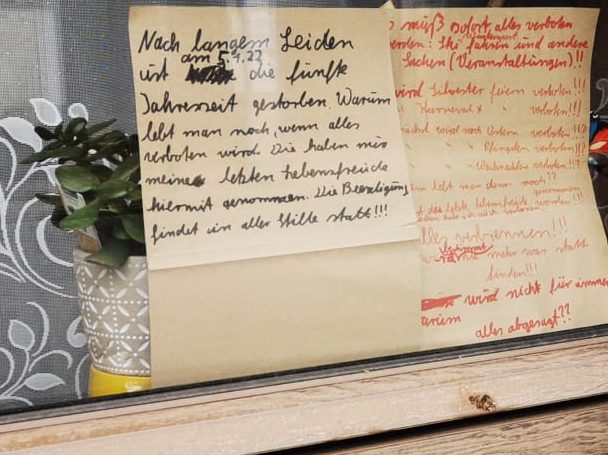 Nach langem Leiden
ist am 5.1.22 die fünfte
Jahreszeit gestorben. Warum
lebt man noch, wenn alles
verboten wird Die haben mir
meine letzten Lebensfreude
hiermit genommen. Die Beerdigung
findet in aller Stille statt!!!
muß sofort alles verboten
werden: Ski fahren und andere
Sachen (Veranstaltungen)!!
wird Silvester feiern verboten!!!
" Karneval " " verboten!!!
wird noch Ostern verboten!!!
" Pfingsten verboten!!!
" Weihnachten verboten!!?
lebt man denn noch??
letzte Lebensfreude genommen worden!!!
alles verbrennen!!!
bestimmt
nie mehr was statt
finden!!!
wird nicht für immer
alles abgesagt??